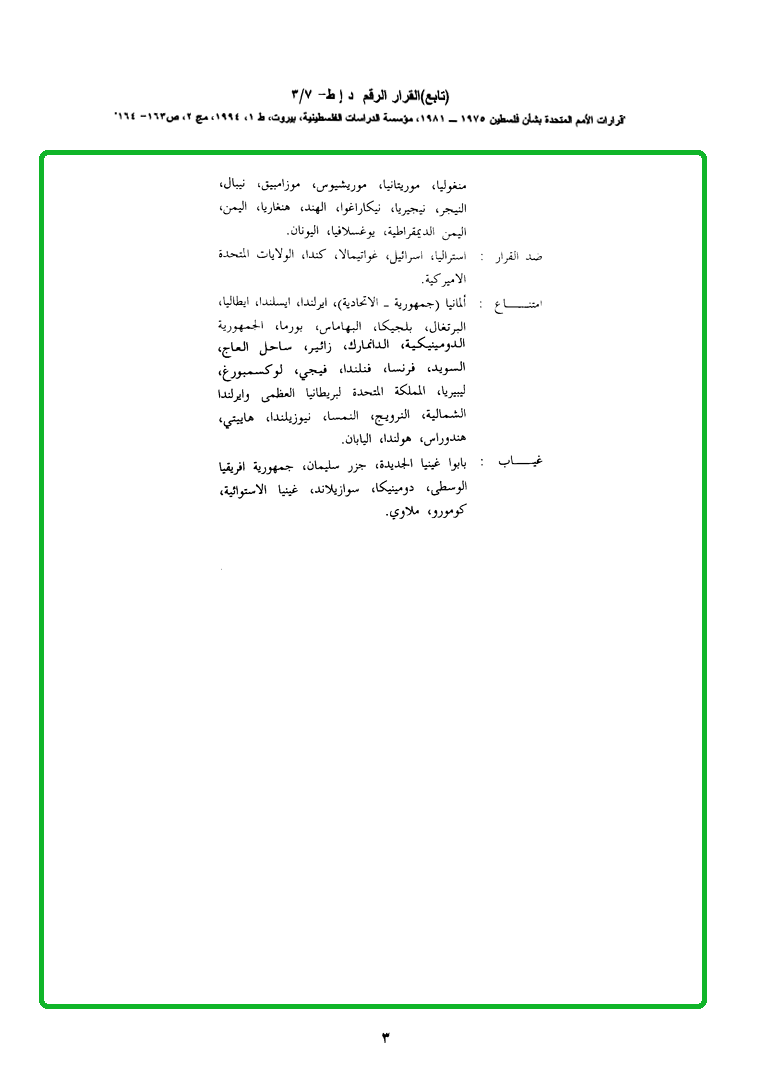 (تابع)القرار الرقم د إ ط- ٣/٧
"قرارات الأمم المتحدة بشأن فلسطين ١٩٧٥ ــ ١٩٨١، مؤسسة الدراسات الفلسطينية، بيروت، ط ١، ١٩٩٤، مج ٢، ص١٦٣- ١٦٤"
منغوليا، موريتانيا، موريشيوس، موزامبيق، نيبال،
النيجر، نيجيريا، نيكاراغوا، الهند، هنغاريا، اليمن،
اليمن الديمقراطية، يوغسلافيا، اليونان.
ضد القرار : استراليا، اسرائيل، غواتيمالا، كندا، الولايات المتحدة
الاميركية.
امتنـــــاع : ألمانيا (جمهورية ـ الاتحادية)، ايرلندا، ايسلندا، ايطاليا،
البرتغال، بلجيكا، البهاماس، بورما، الجمهورية
الدومينيكية، الدانمارك، زائير، ساحل العاج،
السويد، فرنسا، فنلندا، فيجي، لوكسمبورغ،
ليبيريا، المملكة المتحدة لبريطانيا العظمى وايرلندا
الشمالية، النرويج، النمسا، نيوزيلندا، هاييتي،
هندوراس، هولندا، اليابان.
غيـــــاب : بابوا غينيا الجديدة، جزر سليمان، جمهورية افريقيا
الوسطى، دومينيكا، سوازيلاند، غينيا الاستوائية،
كومورو، ملاوي.
٣